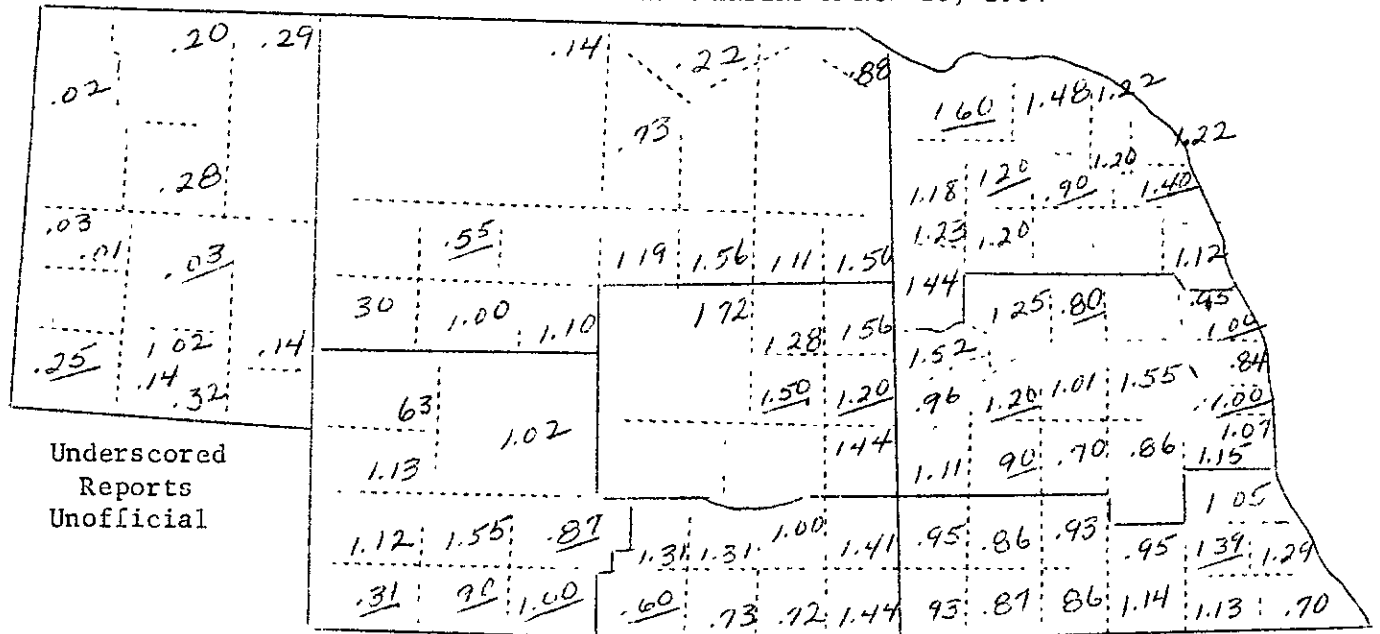 .20 .29 .14 .22 .88
.02 1.60 1.48 1.22
.73 1.22
.28 1.18 1.20 .90 1.20 1.40
.03 .01 .03 .55 1.19 1.56 1.11 1.50 1.23 1.20 1.12
30 1.00 1.10 1.72 1.28 1.56 1.44 1.25 .80 .95 1.00
.25 1.02 .14 1.52 .84
.14 .32 63 1.50 1.20 .96 1.20 1.01 1.55 1.00
1.02 1.44 1.07
1.13 1.11 90 .70 .86 1.15
Underscored
Reports
Unofficial
1.05
1.12 1.55 .87 1.31 1.31 1.00 1.41 .95 .86 .93 .95 1.39 1.29
.31 1.00 .60 .73 .72 1.44 93 .87 86 1.14 1.13 .70